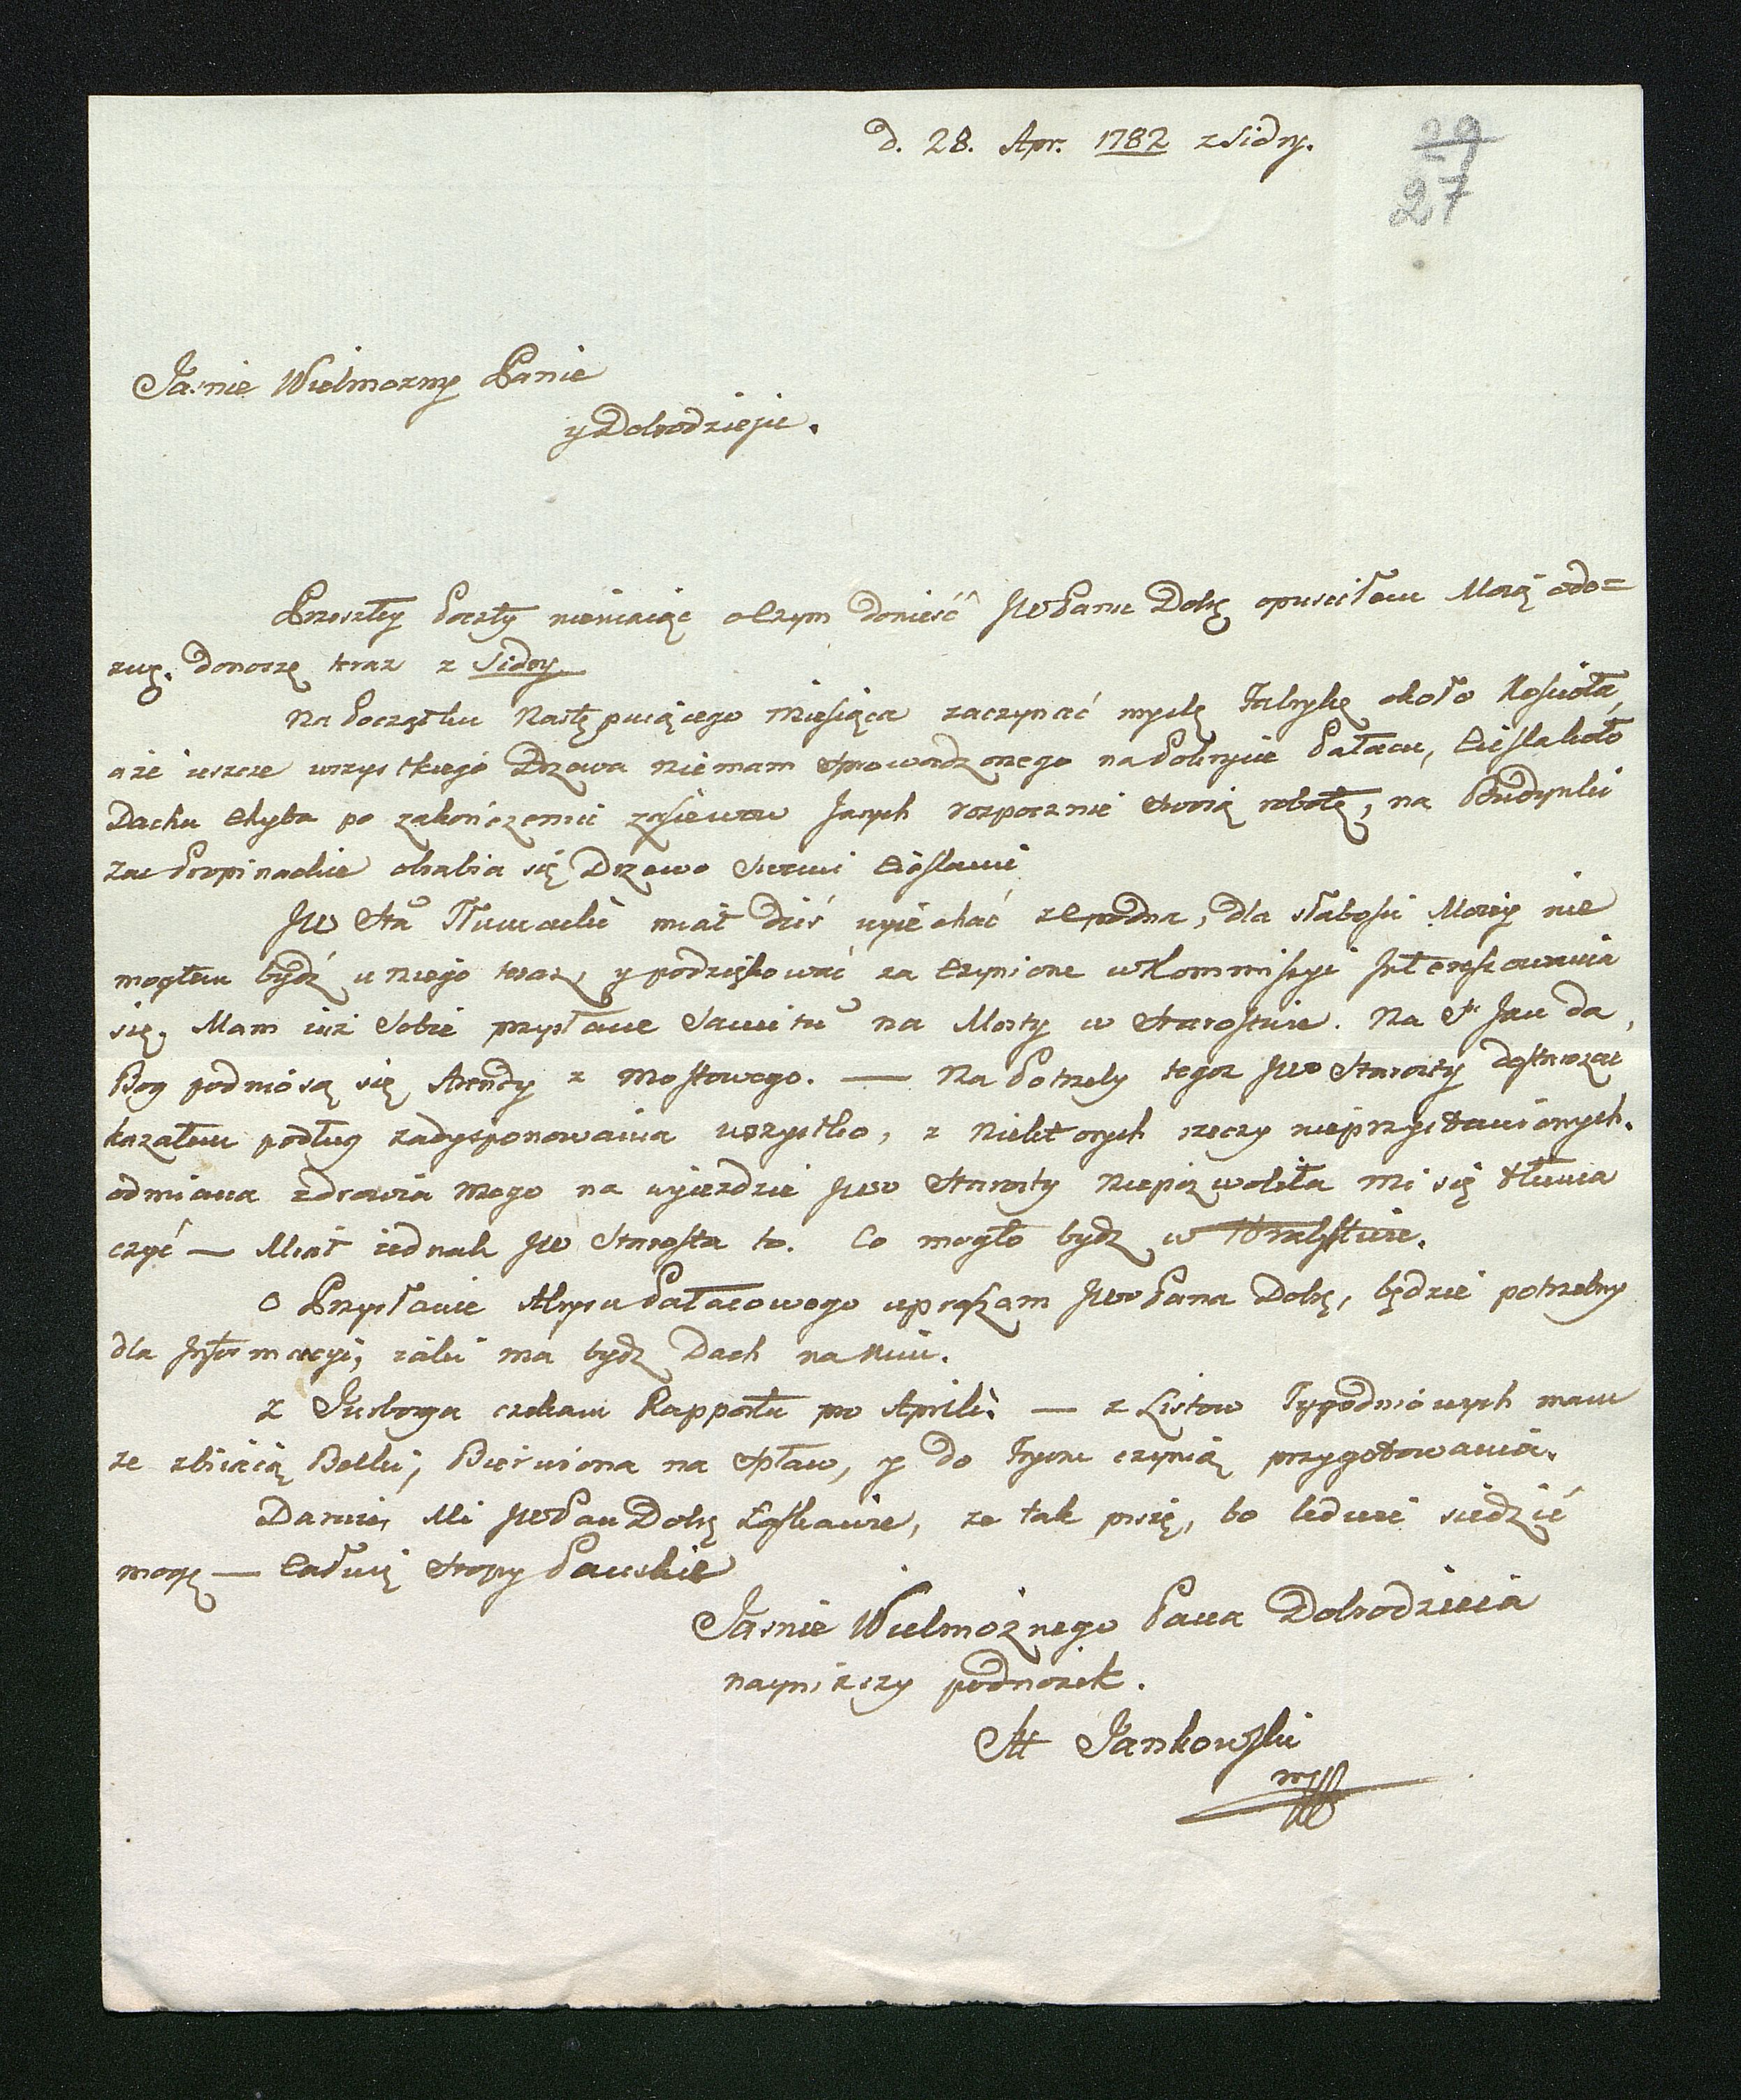 d. 28. Apr. 1782 z Sidry.
29
27
Jasnie Wielmozny Panie
y Dobrodzieju.
Przeszłey Poczty niemaiąc o Czym donieść JW Panu Dobę opuściłem Moią odo=
zwę. donoszę teraz z Sidry
Na Początku Następuiącego Miesiąca zaczynać myslę Fabrykę około Kościoła,
a że ieszcze wszystkiego Drzewa nie mam sprowadzonego na Pokrycie Pałacu, Cieśla koło
Dachu Chyba po zakończeniu zasiewow Jarych rozpocznie swoią robotę, na Budynki
zas Propinackie obrabia się Drzewo Swemi Cieslami
JW Sta Tłumacki miał dziś wyiechać z Grodna, dla słabości Moiey nie
mogłem bydź u niego teraz, y podziękować za Czynione w Kommissyi Interessowania
się. Mam iuż Sobie przysłane na Mosty w Starostwie. Na S. Jan da
Bog podniosą się Arendy z Mostowego. — Na Potrzeby tegoz JW Starosty dostarczać
kazałem podług zadysponowania wszystko, z Niektorych rzeczy nieprzystawionych.
odmiana zdrowia Mego na wyiezdzie JW Starosty Niepozwoliła Mi się tłuma
czyć — Miał iednak JW Starosta to. Co mogło bydz w
O Przysłanie Abrysu Pałacowego upraszam JW Pana Dobę, będzie potrzebny
dla Informacyi, iaki ma bydz Dach na Nim.
z Jurborga czekam Rapportu pro Aprili. — z Listow Tygodniowych mam
ze zbiiaią Belki, Bierwiona na Spław, y do czynią przygotowania.
Daruie Mi JW Pan Dobę Łaskawie, ze tak piszę, bo ledwie siedzieć
mogę — Całuię Stopy Panskie
Jasnie Wielmożnego Pana Dobrodzieia
nayniższy podnożek.
Jankowski
mp